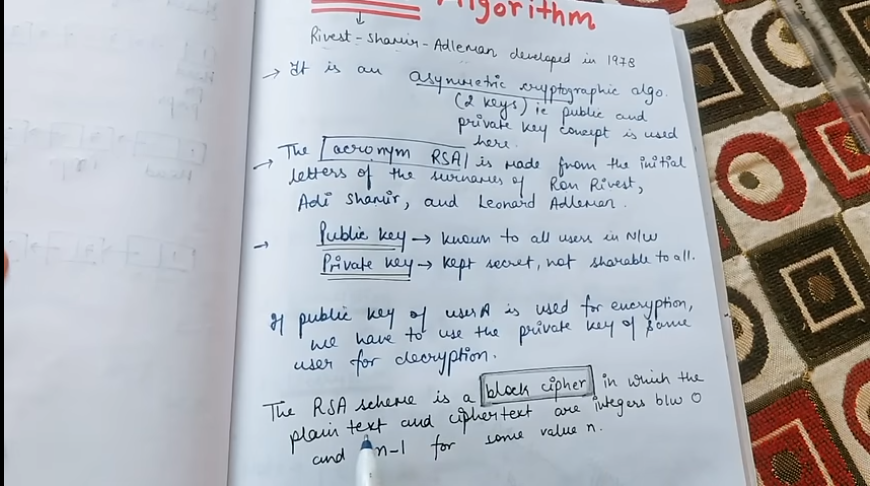 Algorithm
Rivest-Shamir-Adleman developed in 1978
→ It is an asymmetric cryptographic algo.
(2 keys) ie public and
private key concept is used
here.
→ The acronym RSA is made from the initial
letters of the surnames of Ron Rivest,
Adi Shamir, and Leonard Adleman.
→ Public key → known to all users in N/W
Private key → kept secret, not sharable to all.
If public key of user A is used for encryption,
we have to use the private key of same
user for decryption.
The RSA scheme is a block cipher in which the
plain text and ciphertext are integers b/w 0
and n-1 for some value n.